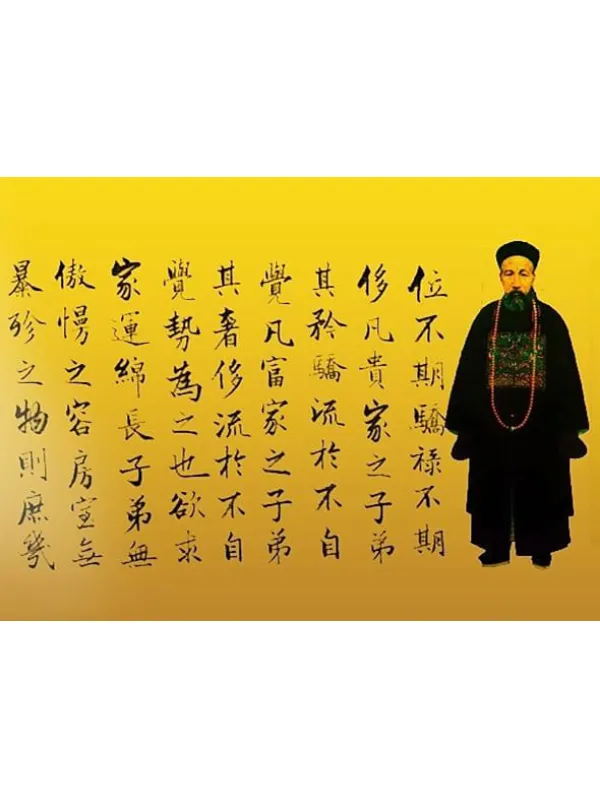 位不期驕禄不期
侈凡貴家之子弟
其矜驕流於不自
覺凡富家之子弟
其奢侈流於不自
覺勢為之也欲求
家運綿長子弟無
傲慢之容房室無
暴殄之物則庶幾